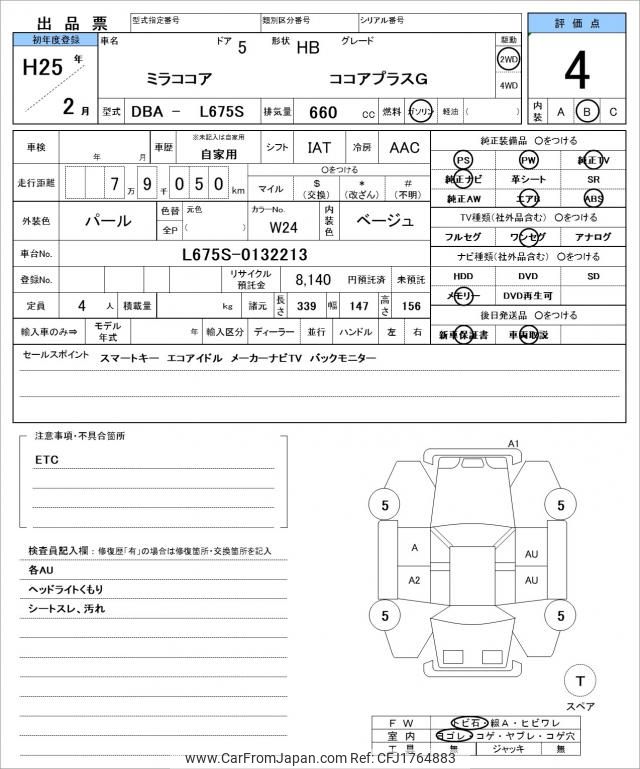 出品票 型式指定番号 類別区分番号 シリアル番号
評価点
初年度登録 車名 ドア 5 形状 HB グレード 駆動
H25 年 ミラココア ココアプラスG 2WD 4
4WD
2 月 型式 DBA － L675S 排気量 660 cc 燃料 ガソリン 軽油 ( ) 内装 A B C
車検 年 月 車歴 ※未記入は自家用 自家用 シフト IAT 冷房 AAC
純正装備品 ○をつける
PS PW 純正TV
純正ナビ 革シート SR
純正AW エアB ABS
走行距離 7 万 9 千 0 5 0 km ○をつける
マイル $ (交換) * (改ざん) # (不明)
外装色 パール 色替 元色 全P ( カラーNo. W24 内装色 ベージュ
TV種類(社外品含む) ○をつける
フルセグ ワンセグ アナログ
車台No. L675S-0132213
ナビ種類(社外品含む) ○をつける
登録No. リサイクル預託金 8,140 円預託済 未預託
HDD DVD SD
メモリー DVD再生可
定員 4 人 積載量 kg 諸元 長さ 339 幅 147 高さ 156
後日発送品 ○をつける
新車保証書 車両取説
輸入車のみ⇒ モデル年式 年 輸入区分 ディーラー 並行 ハンドル 左 右
セールスポイント スマートキー エコアイドル メーカーナビTV バックモニター
注意事項・不具合箇所
ETC
検査員記入欄：修復歴「有」の場合は修復箇所・交換箇所を記入
各AU
ヘッドライトくもり
シートスレ、汚れ
A1
5 5
A AU
A2 AU
5 5
T
スペア
FW トビ石・線A・ヒビワレ
室内 ヨゴレ・コゲ・ヤブレ・コゲ穴
工具 無 ジャッキ 無
www.CarFromJapan.com Ref: CFJ1764883